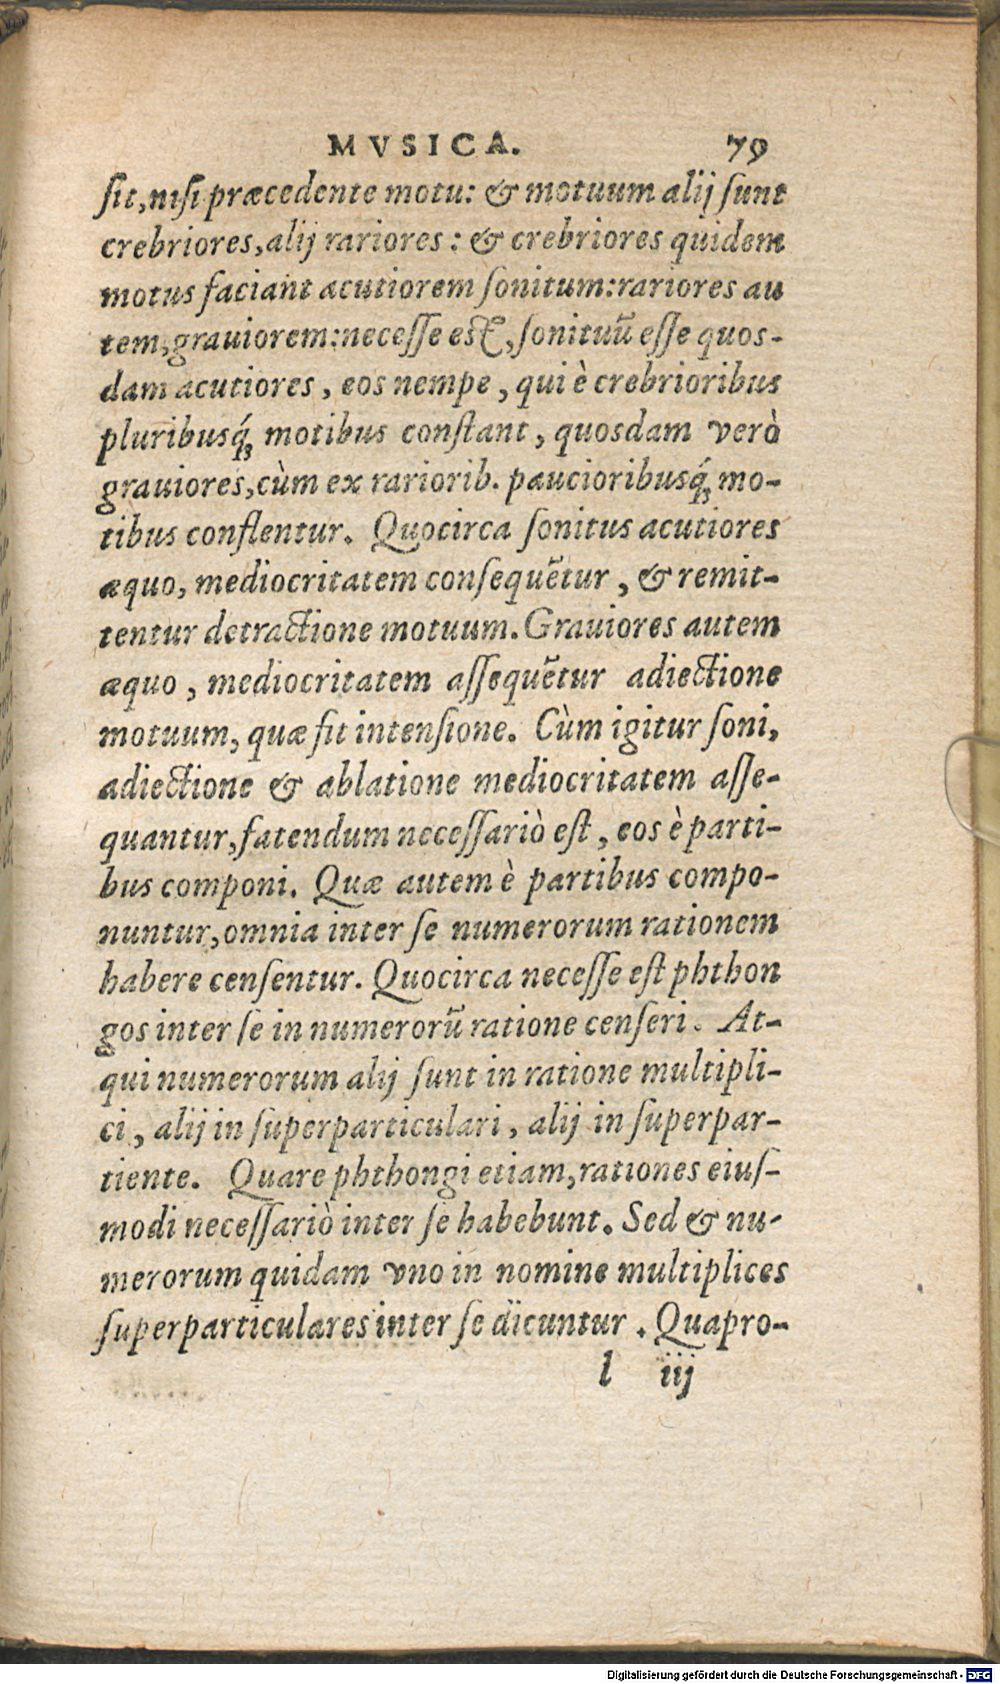 MVSICA. 79
sit, nisi præcedente motu: & motuum alij sunt
crebriores, alij rariores: & crebriores quidem
motus faciant acutiorem sonitum: rariores au
tem, grauiorem: necesse est, sonituũ esse quos-
dam acutiores, eos nempe, qui è crebrioribus
pluribusq́; motibus constant, quosdam verò
grauiores, cùm ex rariorib. paucioribusq́; mo-
tibus conflentur. Quocirca sonitus acutiores
æquo, mediocritatem consequẽtur, & remit-
tentur detractione motuum. Grauiores autem
æquo, mediocritatem assequẽtur adiectione
motuum, quæ fit intensione. Cùm igitur soni,
adiectione & ablatione mediocritatem asse-
quantur, fatendum necessariò est, eos è parti-
bus componi. Quæ autem è partibus compo-
nuntur, omnia inter se numerorum rationem
habere censentur. Quocirca necesse est phthon
gos inter se in numerorũ ratione censeri. At-
qui numerorum alij sunt in ratione multipli-
ci, alij in superparticulari, alij in superpar-
tiente. Quare phthongi etiam, rationes eius-
modi necessariò inter se habebunt. Sed & nu-
merorum quidam vno in nomine multiplices
superparticulares inter se dicuntur. Quapro-
l iij
Digitalisierung gefördert durch die Deutsche Forschungsgemeinschaft - DFG